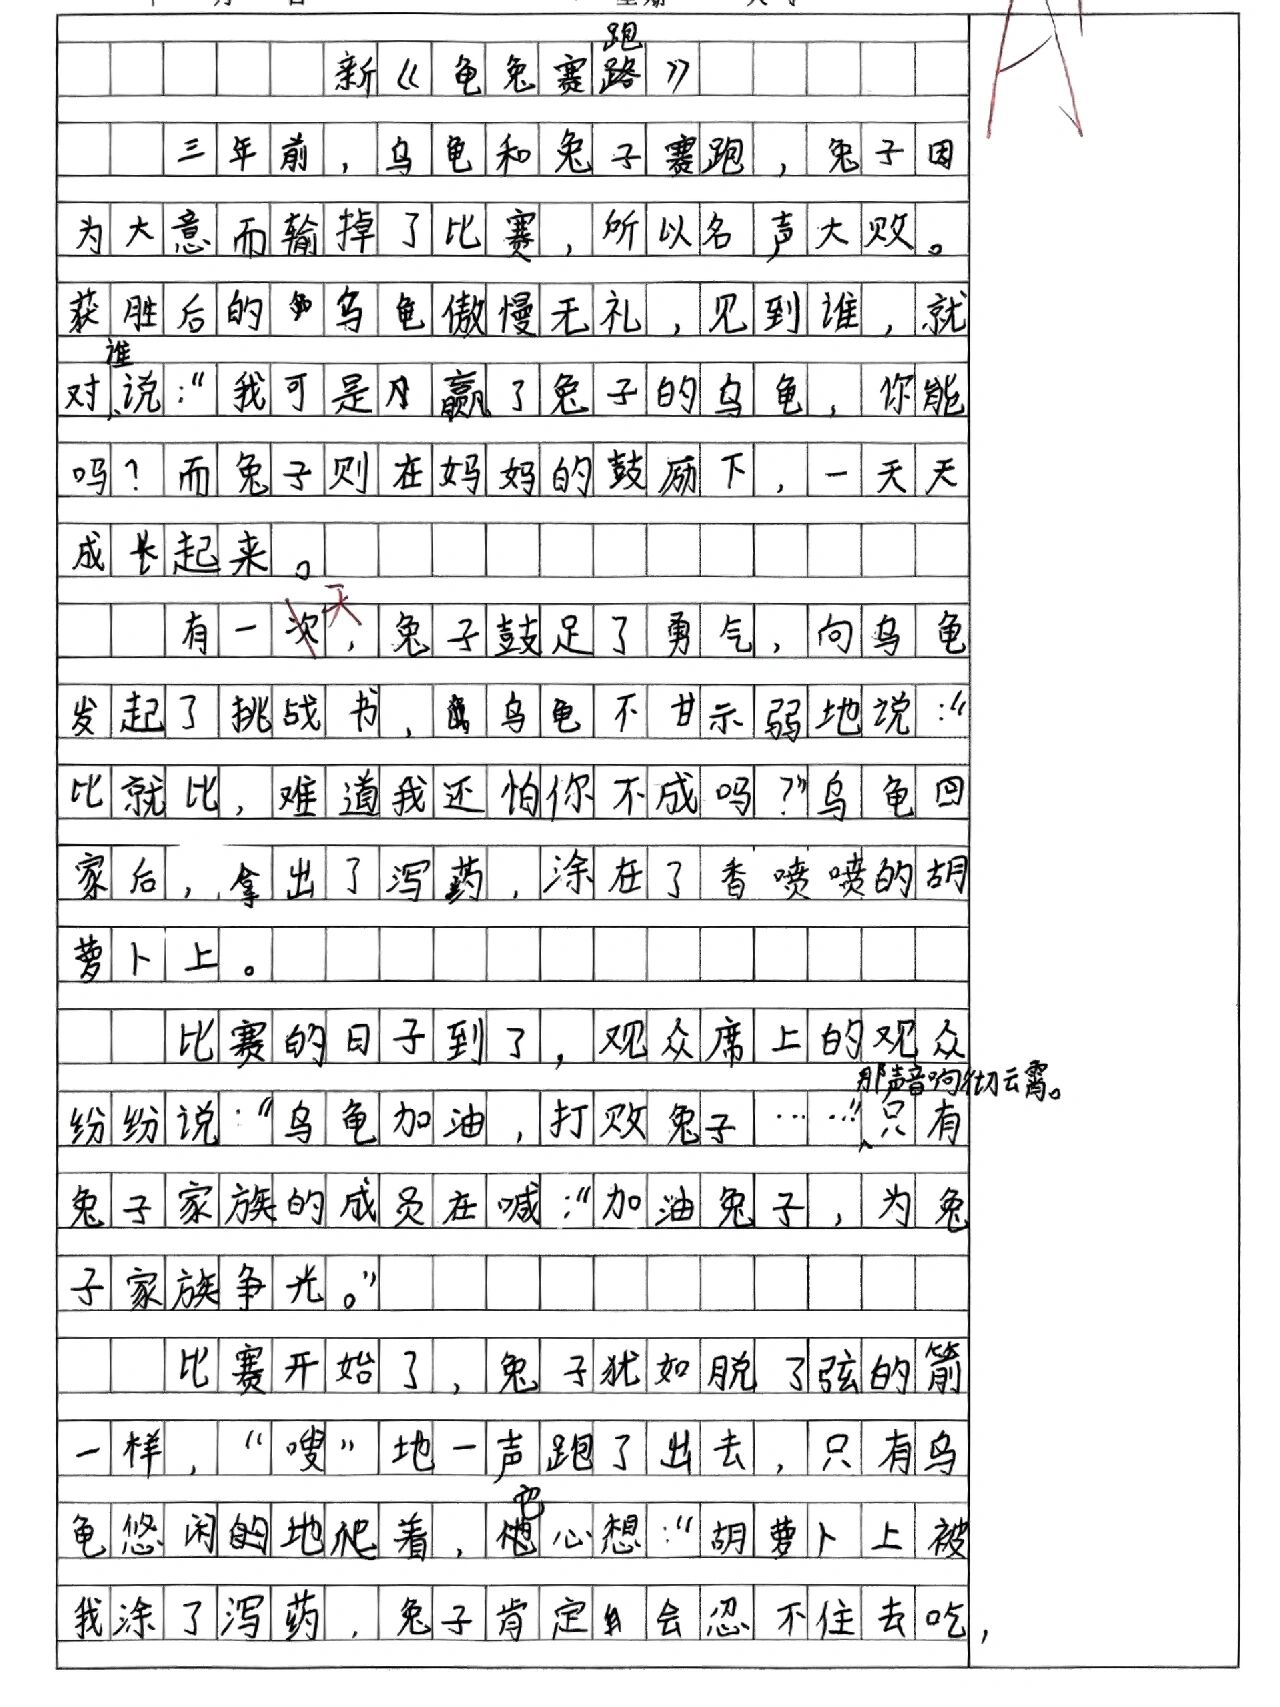 新《龟兔赛跑》
三年前，乌龟和兔子赛跑，兔子因
为大意而输掉了比赛，所以名声大败。
获胜后的乌龟傲慢无礼，见到谁，就
对谁说：“我可是赢了兔子的乌龟，你能
吗？而兔子则在妈妈的鼓励下，一天天
成长起来。
有一天，兔子鼓足了勇气，向乌龟
发起了挑战书，乌龟不甘示弱地说：“
比就比，难道我还怕你不成吗？”乌龟回
家后，拿出了泻药，涂在了香喷喷的胡
萝卜上。
比赛的日子到了，观众席上的观众
纷纷说：“乌龟加油，打败兔子……”那声音响彻云霄。只有
兔子家族的成员在喊：“加油兔子，为兔
子家族争光。”
比赛开始了，兔子犹如脱了弦的箭
一样，“嗖”地一声跑了出去，只有乌
龟悠闲地爬着，它心想：“胡萝卜上被
我涂了泻药，兔子肯定会忍不住去吃，